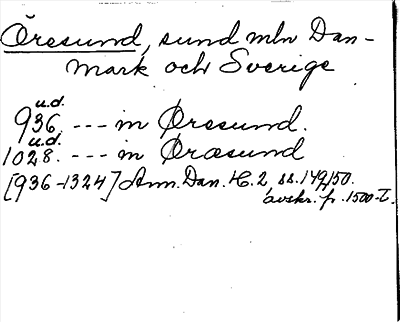 Öresund, sund mln Dan-
mark och Sverige
u.d.
936. --- in Øresund.
u.d.
1028. --- in Øræsund
[936-1324] Ann. Dan. H. 2, ss. 149, 150.
avskr. fr. 1500-t.